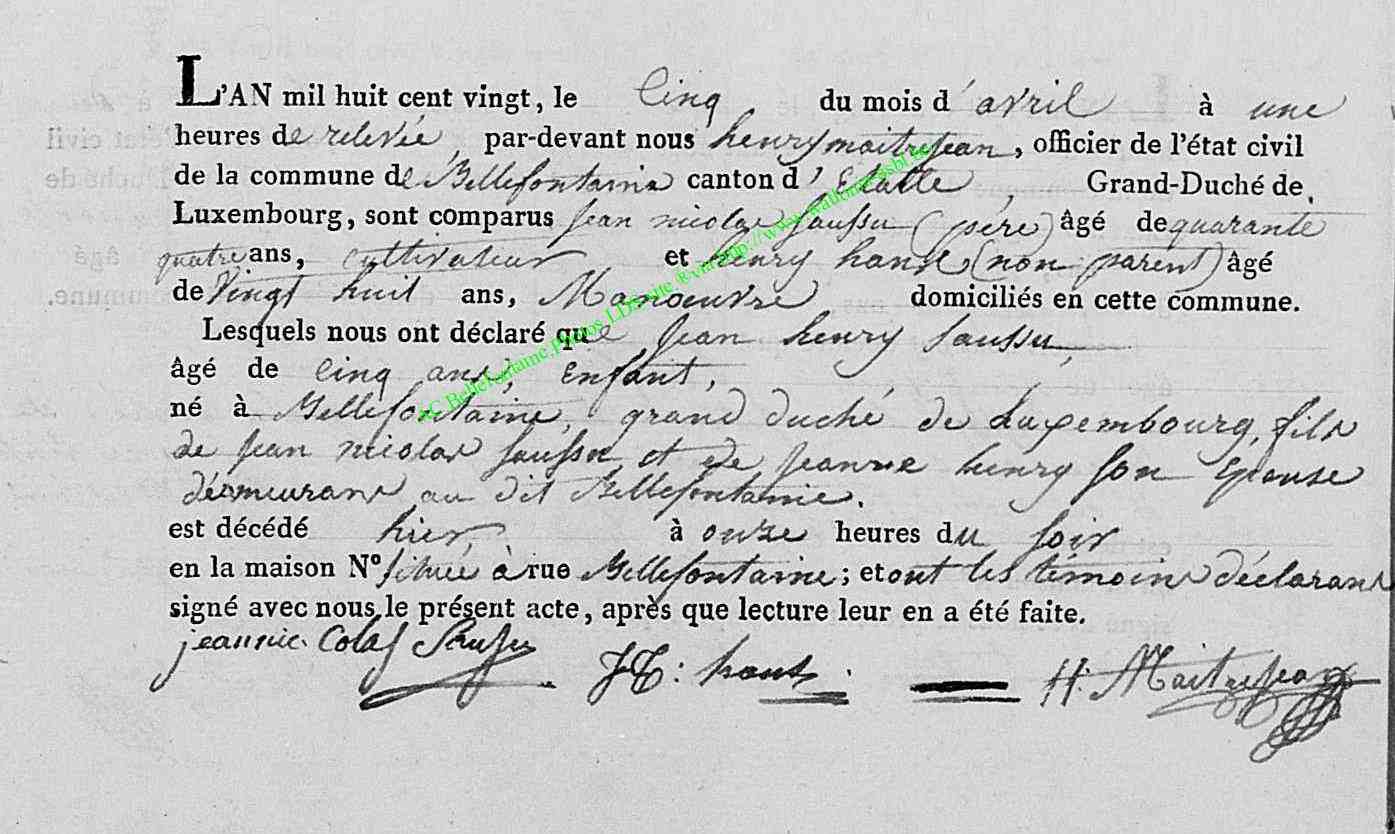 L'AN mil huit cent vingt, le Cinq du mois d'avril à une
heures de relevée par-devant nous henry maitrejean, officier de l'état civil
de la commune de Bellefontaine canton d'Etalle, Grand-Duché de
Luxembourg, sont comparus jean nicolas saussu (père) âgé de quarante
quatre ans, cultivateur et henry (non parent) âgé
de Vingt huit ans, Manoeuvre domiciliés en cette commune.
Lesquels nous ont déclaré que jean henry saussu,
âgé de Cinq ans, Enfant,
né à Bellefontaine, grand duché de Luxembourg, fils
de jean nicolas saussu et de jeanne henry son Epouse
démeurans au dit Bellefontaine.
est décédé hier, à onze heures du soir
en la maison N° située à rue Bellefontaine; et ont les témoins déclarans
signé avec nous le présent acte, après que lecture leur en a été faite.
jeannic. Colas Sausu H: Maitrejean
AC Bellefontaine.photos LDS.site @via http://www.